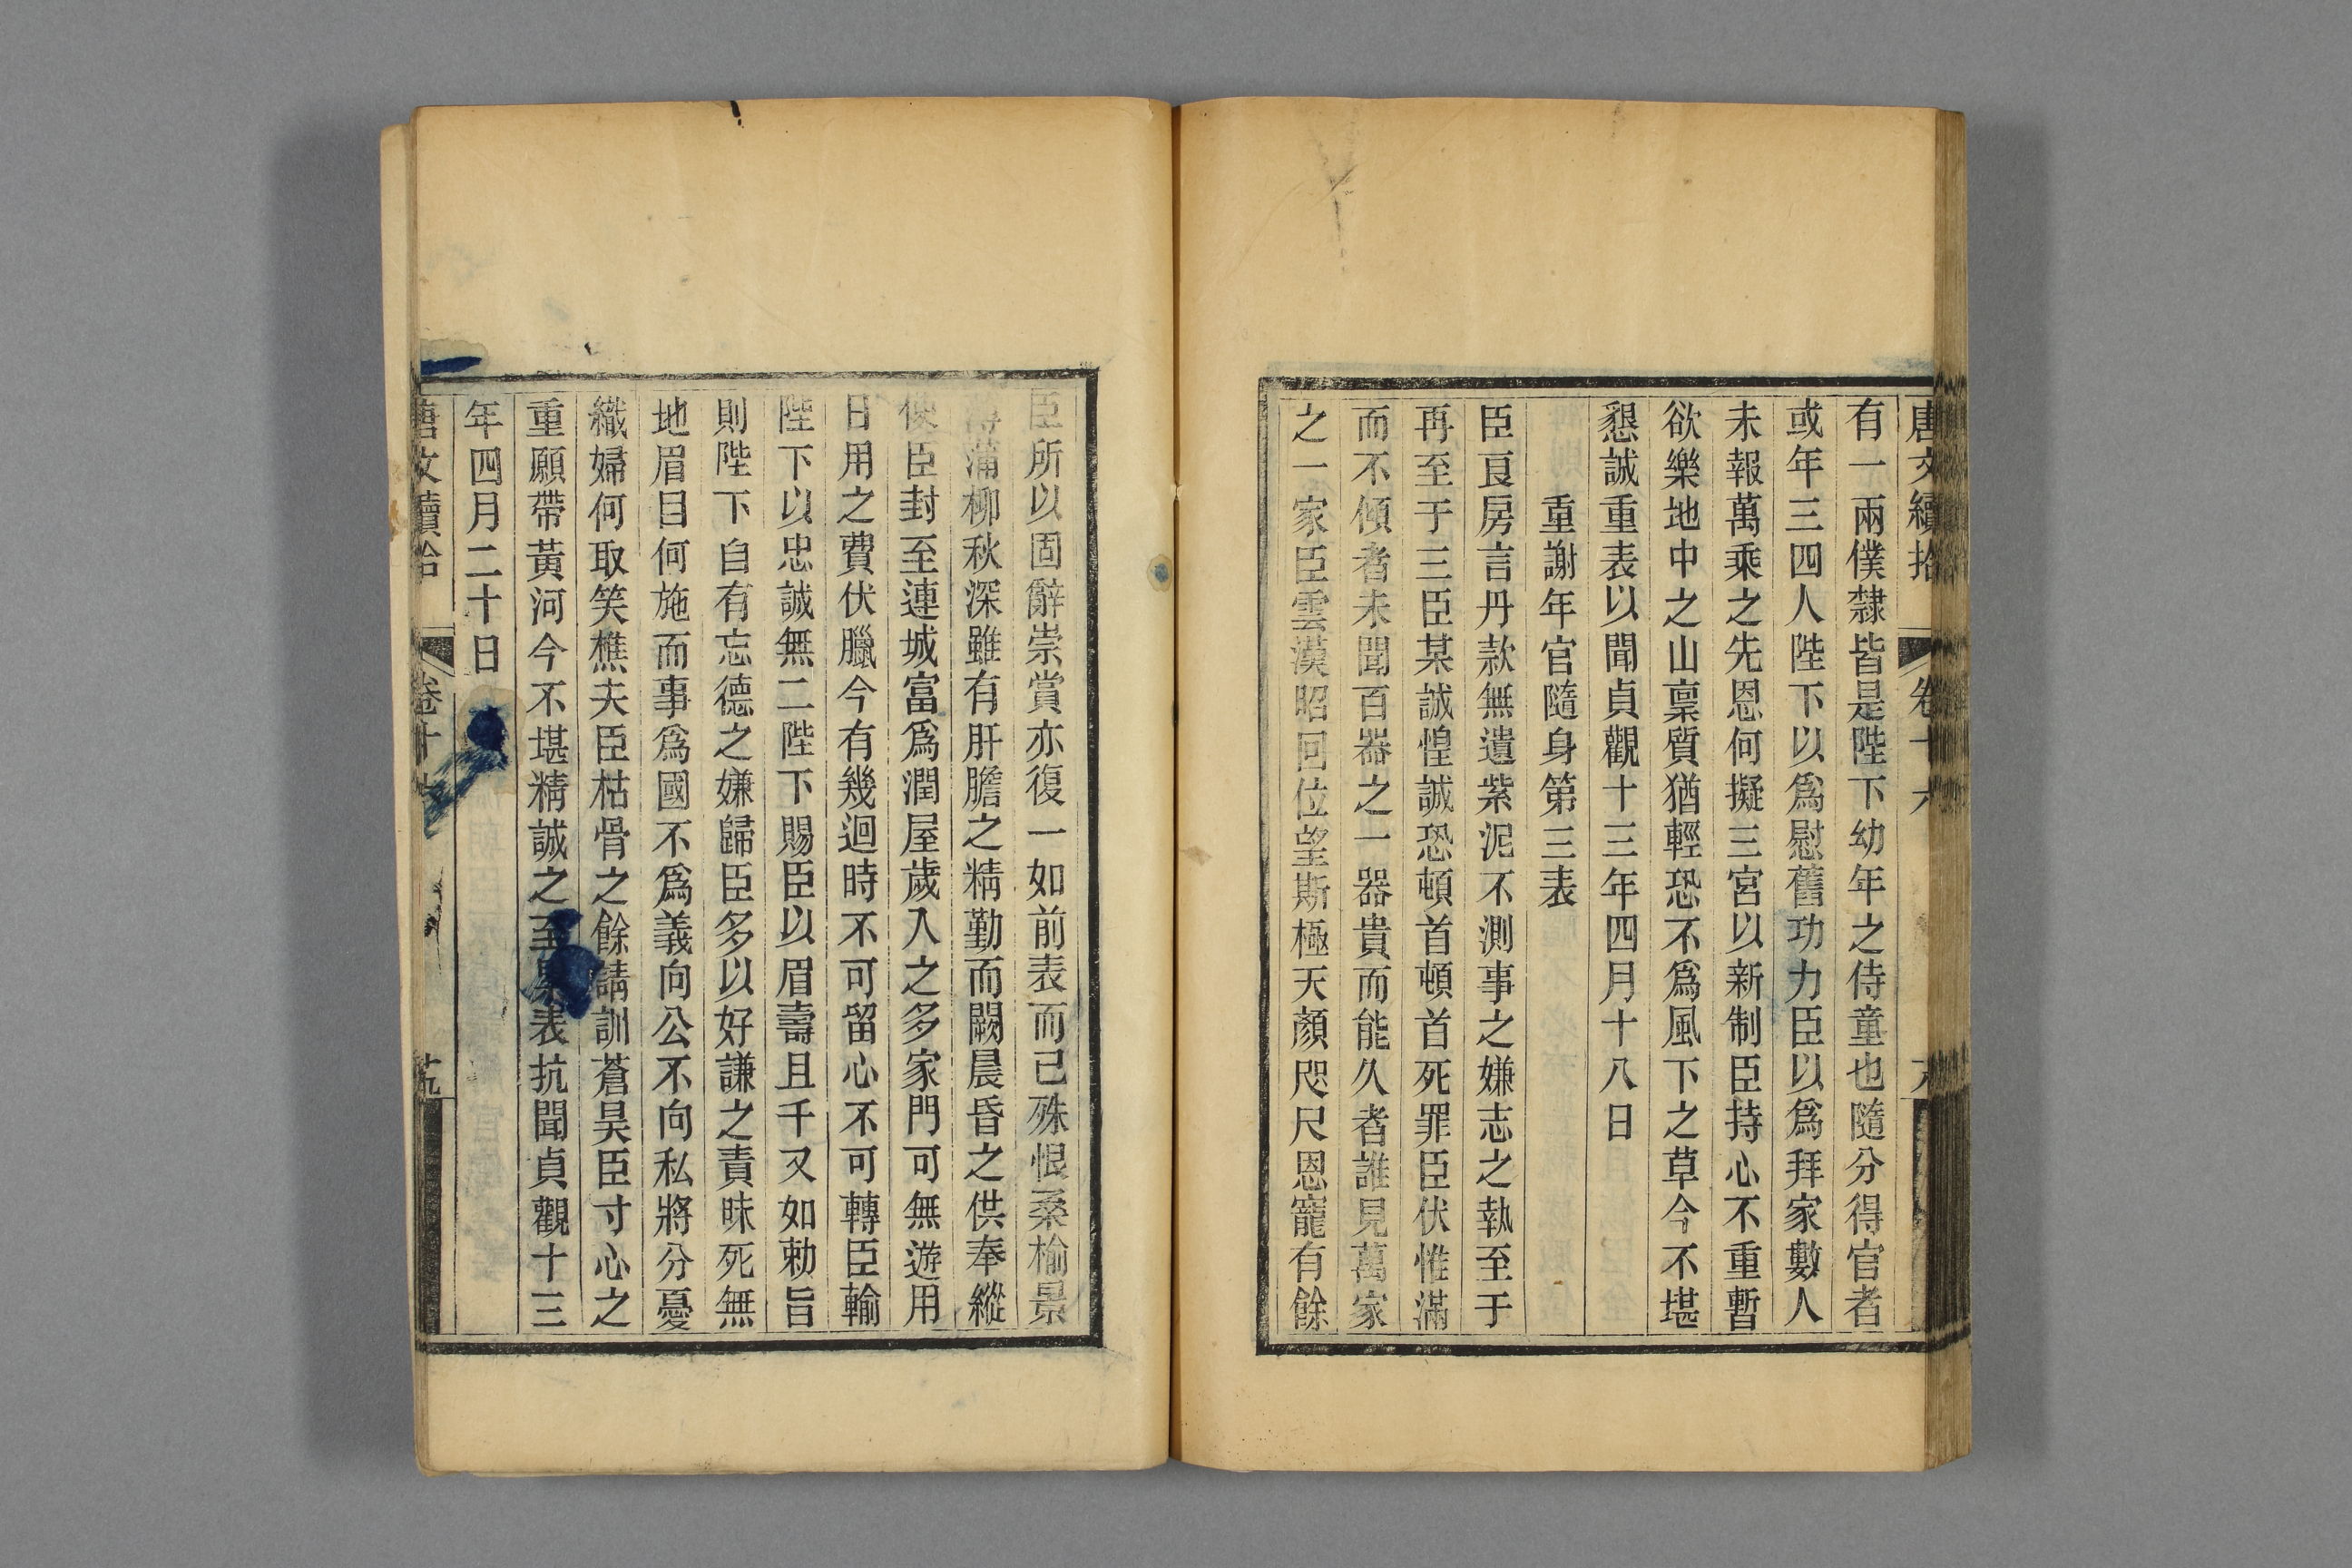 唐文續拾 卷十六
有一兩僕隸皆是陛下幼年之侍童也隨分得官者
或年三四人陛下以爲慰舊功力臣以爲拜家數人
未報萬乘之先恩何擬三宮以新制臣持心不重暫
欲樂地中之山稟質猶輕恐不爲風下之草今不堪
懇誠重表以聞貞觀十三年四月十八日
重謝年官隨身第三表
臣良房言丹款無遺紫泥不測事之嫌志之執至于
再至于三臣某誠惶誠恐頓首頓首死罪臣伏惟滿
而不傾者未聞百器之一器貴而能久者誰見萬家
之一家臣雲漢昭回位望斯極天顏咫尺恩寵有餘
臣所以固辭崇賞亦復一如前表而己殊恨桑榆景
薄蒲柳秋深雖有肝膽之精勤而闕晨昏之供奉縱
使臣封至連城富爲潤屋歲入之多家門可無遊用
日用之費伏臘今有幾迴時不可留心不可轉臣輸
陛下以忠誠無二陛下賜臣以眉壽且千又如勅旨
則陛下自有忘德之嫌歸臣多以好謙之責昧死無
地眉目何施而事爲國不爲義向公不向私將分憂
織婦何取笑樵夫臣枯骨之餘請訓蒼昊臣寸心之
重願帶黃河今不堪精誠之至累表抗聞貞觀十三
年四月二十日
唐文續拾 卷十